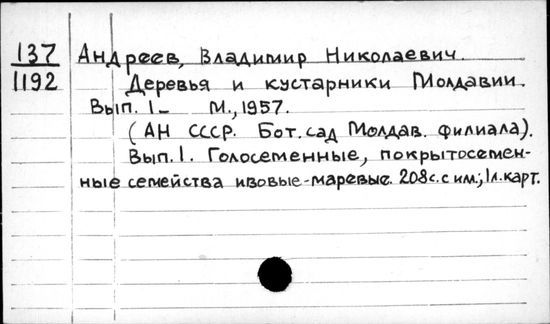 137
1192
Андреев, Владимир Николаевич.
Деревья и кустарники Молдавии.
Вып. 1- М., 1957.
(АН СССР. Бот. сад Молдав. филиала).
Вып. 1. Голосеменные, покрытосемен-
ные семейства ивовые-маревые. 208с. с ил.; 1л. карт.